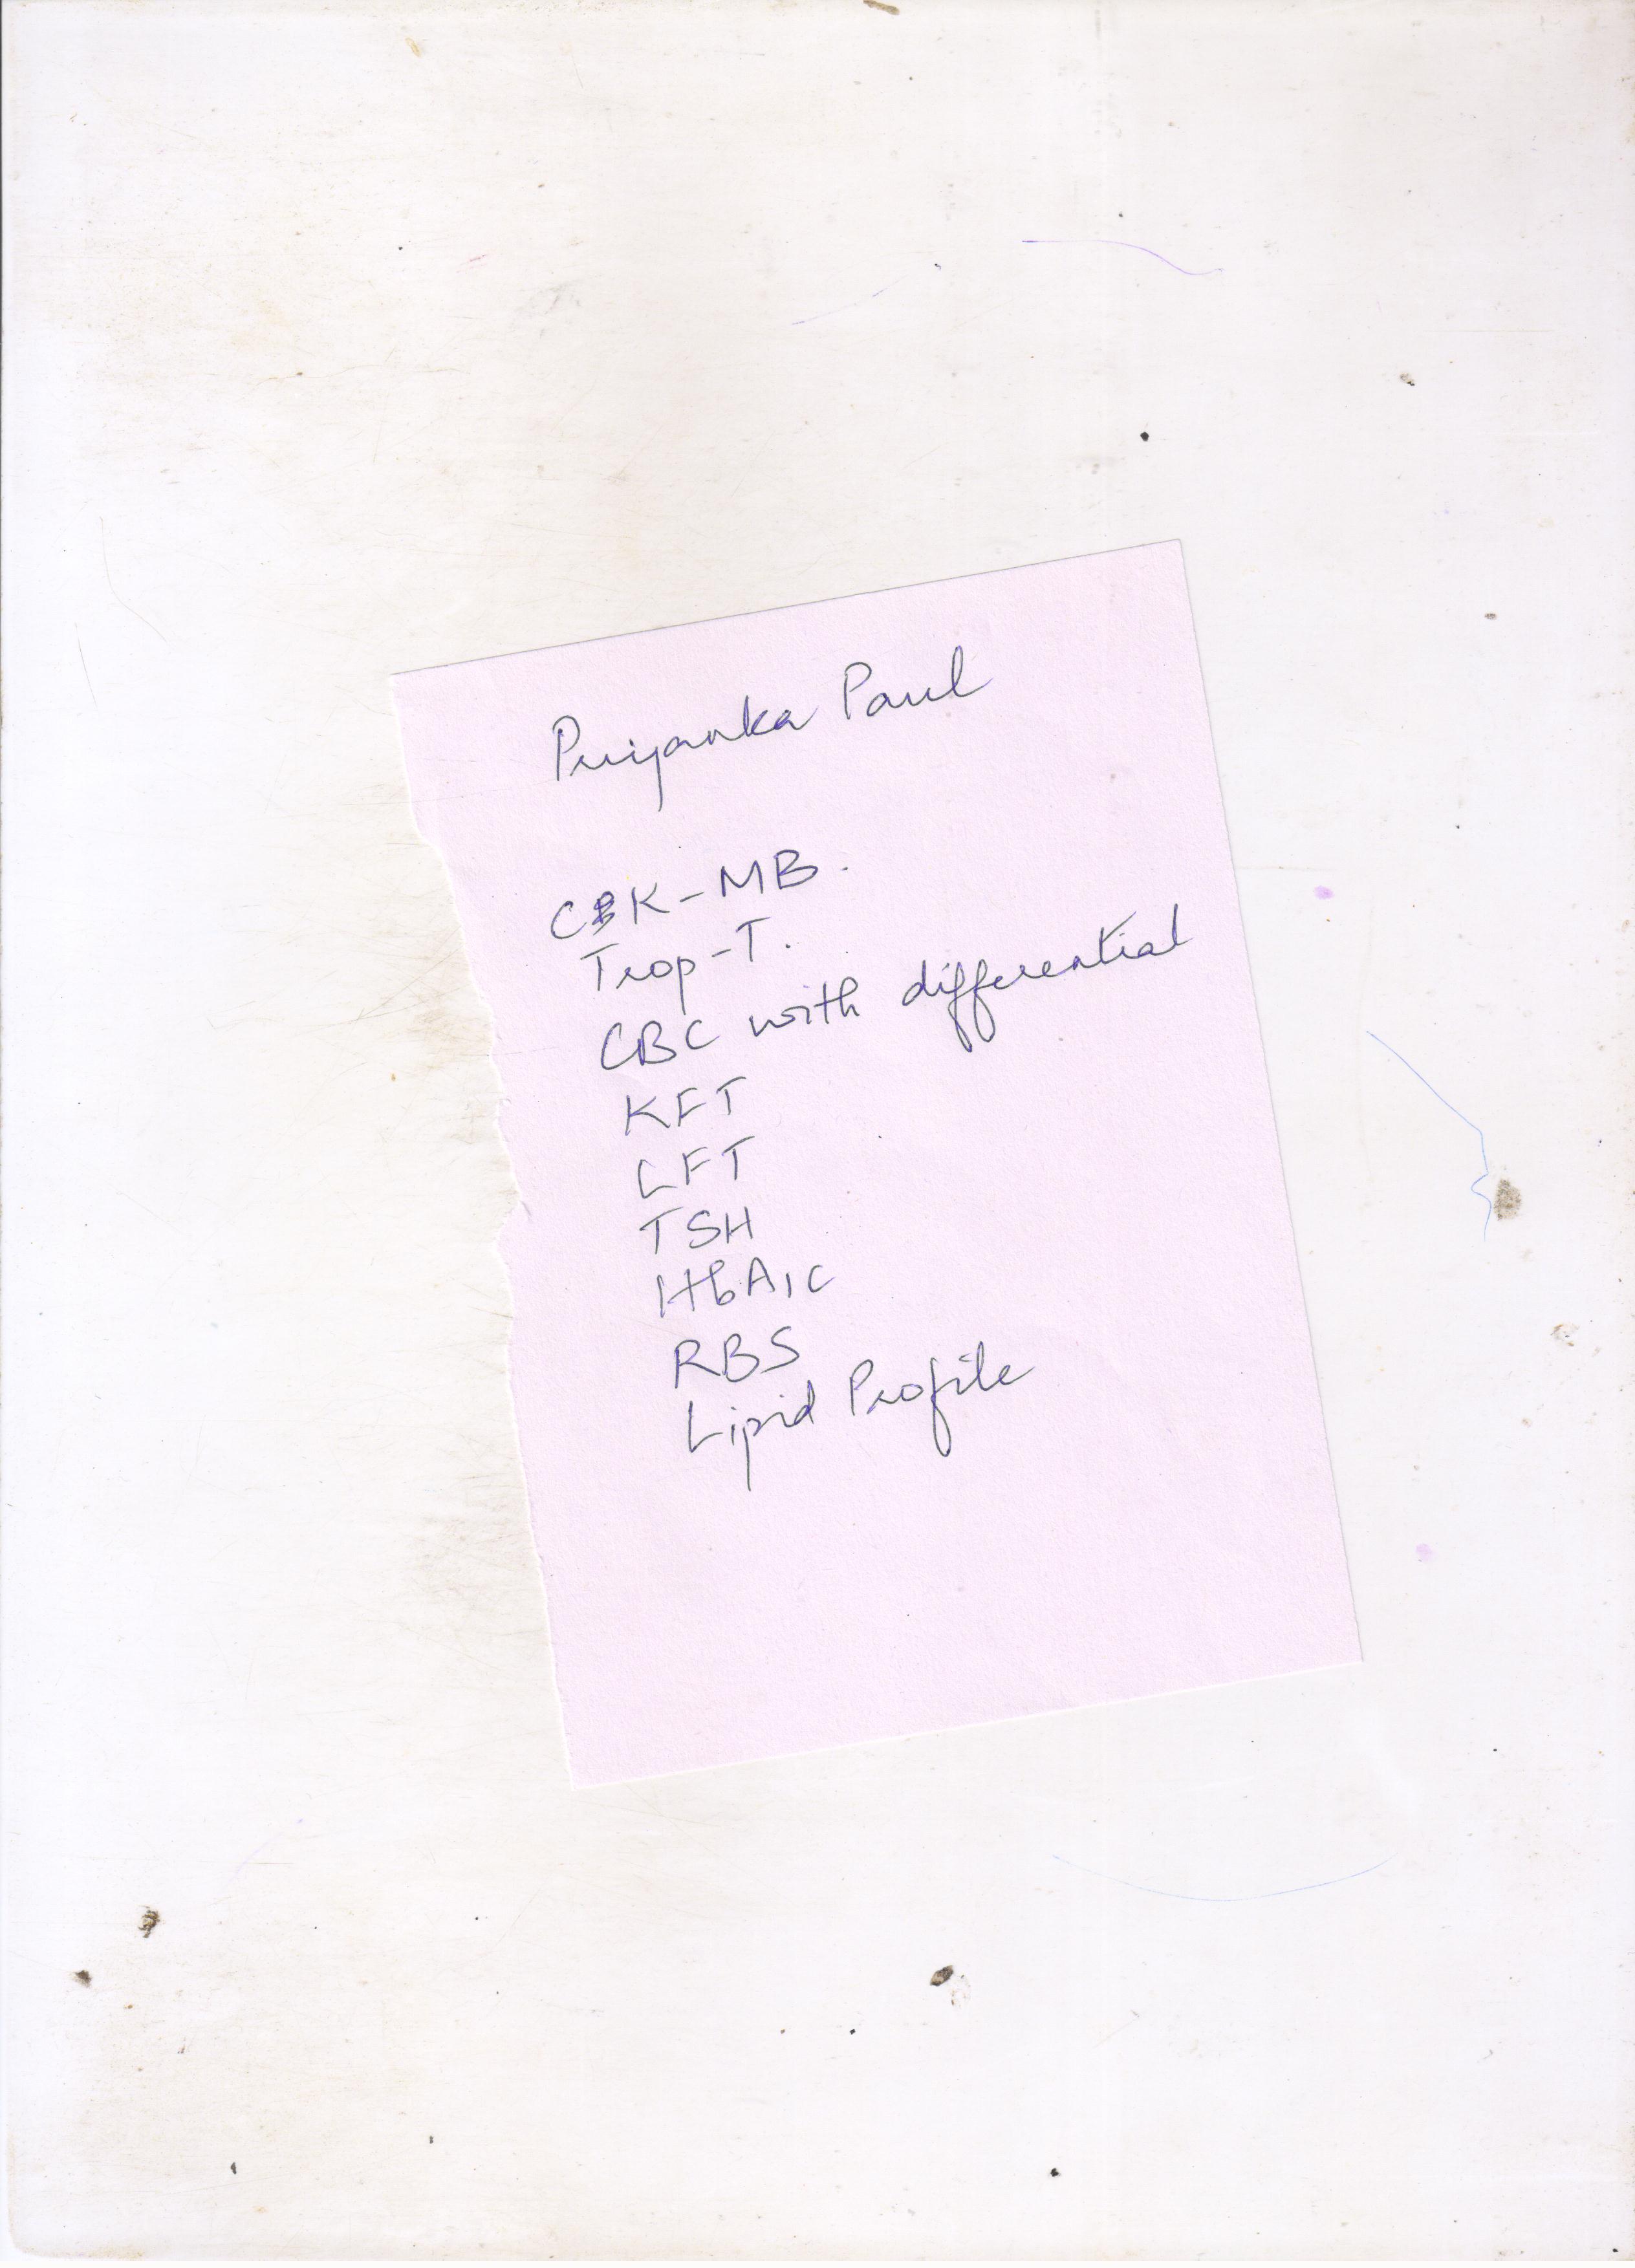 Priyanka Paul
CPK-MB.
Trop-T.
CBC with differential
KFT
LFT
TSH
HbA1c
RBS
Lipid Profile